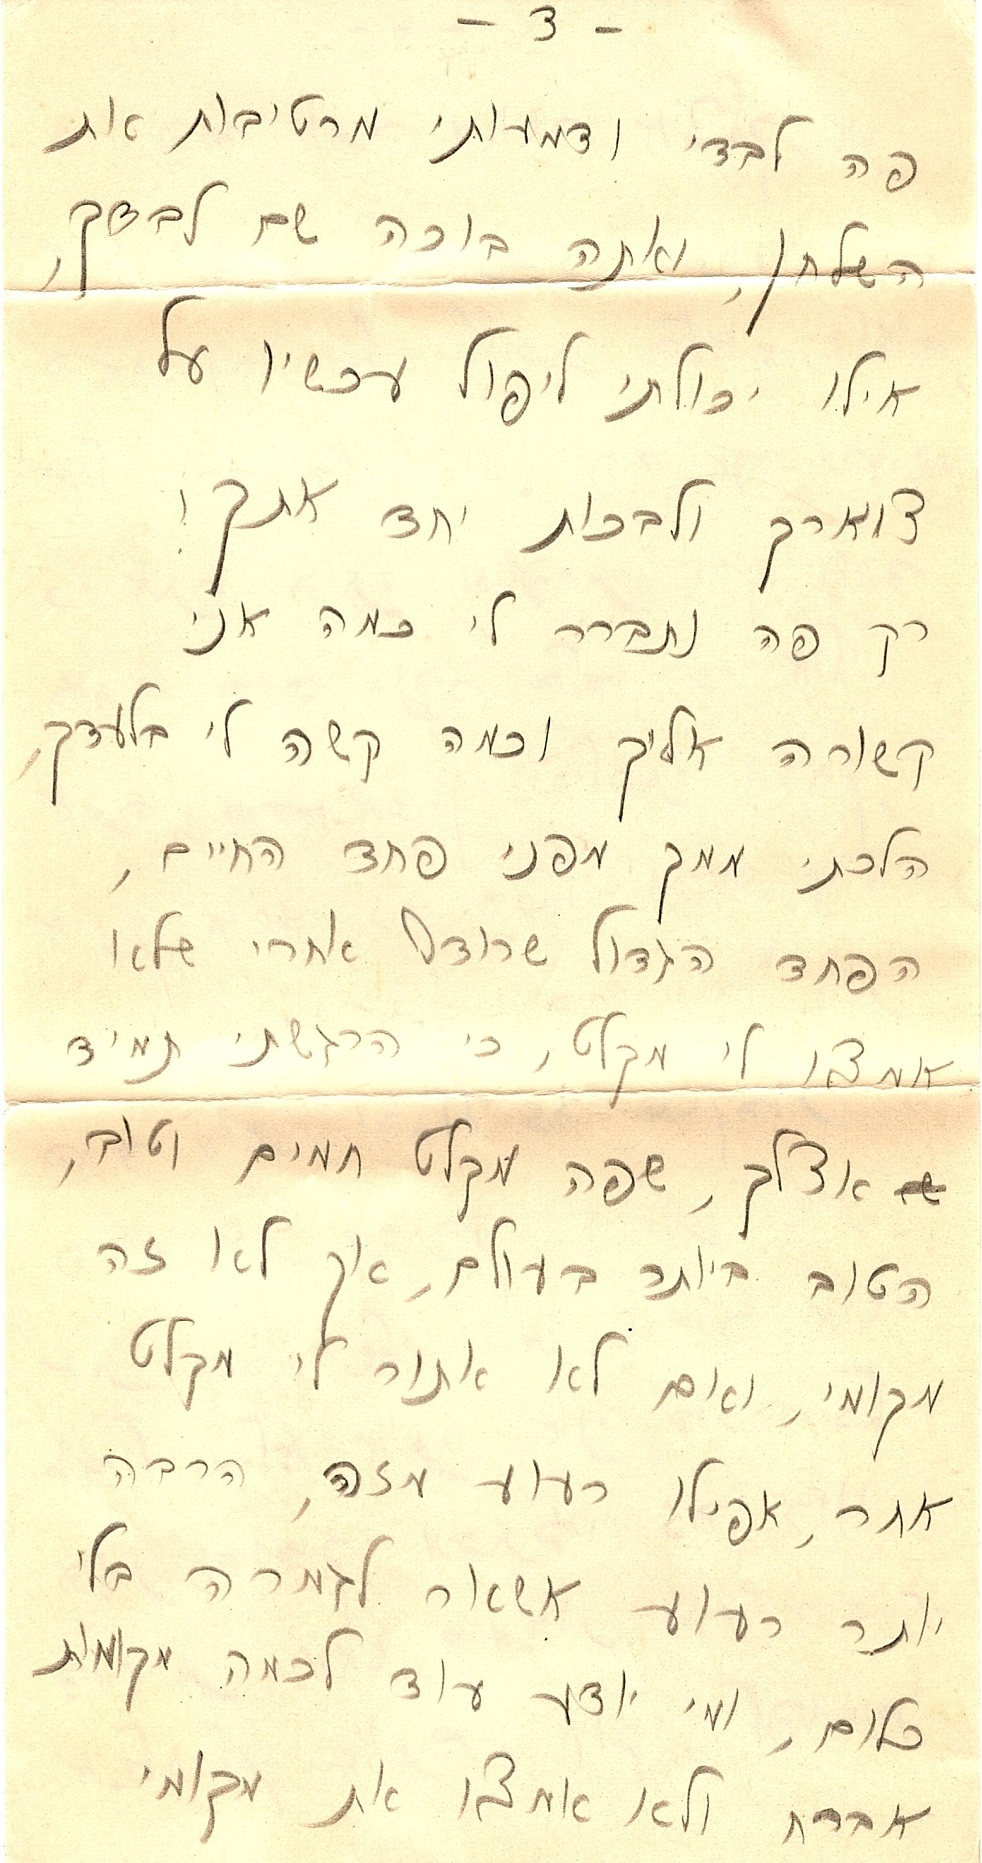 - 3 -
פה לבדי ודמעותי מרטיבות את
השלחן, ואתה בוכה שם לבדך,
אילו יכולתי ליפול עכשיו על
צוארך ולבכות יחד אתך!
רק פה נתברר לי כמה אני
קשורה אליך וכמה קשה לי בלעדך,
הלכתי ממך מפני פחד החיים,
הפחד הגדול שרודף אחרי שלא
אמצא לי מקלט, כי הרגשתי תמיד
אצלך, שפה מקלט חמים וטוב,
הטוב ביותר בעולם, אך לא זה
מקומי, ואם לא אתור לי מקלט
אחר, אפילו רעוע מזה, הרבה
יותר רעוע אשאר לגמרה בלי
כלום, ומי יודע עוד לכמה מקומות
אברח ולא אמצא את מקומי